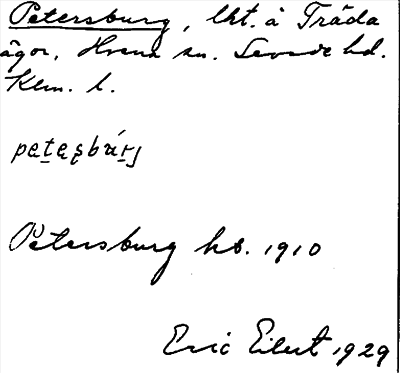 Petersburg, lht. å Träda
ägor, Hvena sn. Sevede hd.
Klm. l.
petesbúrj
Petersburg hs. 1910
Eric Eilert 1929